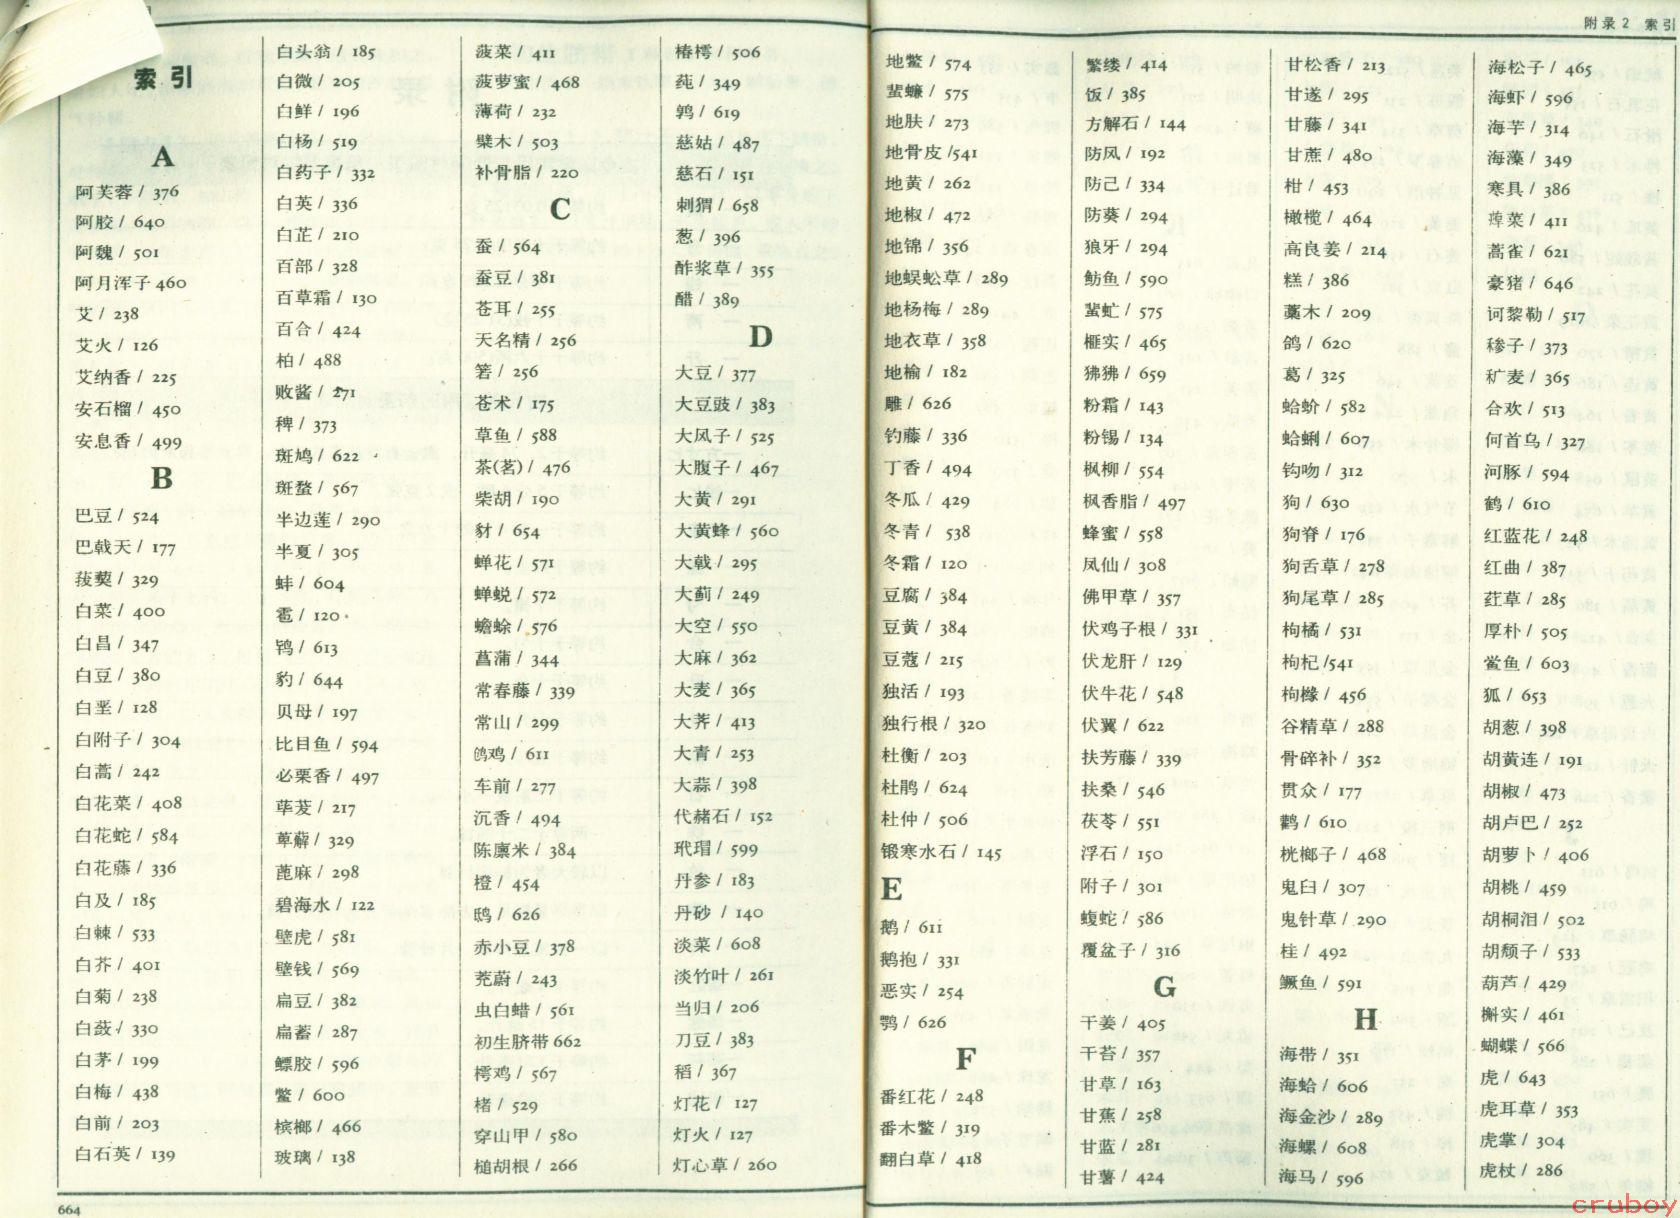 索引
A
阿芙蓉 / 376
阿胶 / 640
阿魏 / 501
阿月浑子 460
艾 / 238
艾火 / 126
艾纳香 / 225
安石榴 / 450
安息香 / 499
B
巴豆 / 524
巴戟天 / 177
菝葜 / 329
白菜 / 400
白昌 / 347
白豆 / 380
白垩 / 128
白附子 / 304
白蒿 / 242
白花菜 / 408
白花蛇 / 584
白花藤 / 336
白及 / 185
白棘 / 533
白芥 / 401
白菊 / 238
白蔹 / 330
白茅 / 199
白梅 / 438
白前 / 203
白石英 / 139
白头翁 / 185
白微 / 205
白鲜 / 196
白杨 / 519
白药子 / 332
白英 / 336
白芷 / 210
百部 / 328
百草霜 / 130
百合 / 424
柏 / 488
败酱 / 271
稗 / 373
斑鸠 / 622
斑蝥 / 567
半边莲 / 290
半夏 / 305
蚌 / 604
雹 / 120
鸨 / 613
豹 / 644
贝母 / 197
比目鱼 / 594
必栗香 / 497
荜茇 / 217
萆薢 / 329
蓖麻 / 298
碧海水 / 122
壁虎 / 581
壁钱 / 569
扁豆 / 382
扁蓄 / 287
鳔胶 / 596
鳖 / 600
槟榔 / 466
玻璃 / 138
菠菜 / 411
菠萝蜜 / 468
薄荷 / 232
檗木 / 503
补骨脂 / 220
C
蚕 / 564
蚕豆 / 381
苍耳 / 255
天名精 / 256
箬 / 256
苍术 / 175
草鱼 / 588
茶(茗) / 476
柴胡 / 190
豺 / 654
蝉花 / 571
蝉蜕 / 572
蟾蜍 / 576
菖蒲 / 344
常春藤 / 339
常山 / 299
鸧鸡 / 611
车前 / 277
沉香 / 494
陈廪米 / 384
橙 / 454
鸱 / 626
赤小豆 / 378
茺蔚 / 243
虫白蜡 / 561
初生脐带 662
樗鸡 / 567
楮 / 529
穿山甲 / 580
槌胡根 / 266
椿樗 / 506
莼 / 349
鹑 / 619
慈姑 / 487
慈石 / 151
刺猬 / 658
葱 / 396
酢浆草 / 355
醋 / 389
D
大豆 / 377
大豆豉 / 383
大风子 / 525
大腹子 / 467
大黄 / 291
大黄蜂 / 560
大戟 / 295
大蓟 / 249
大空 / 550
大麻 / 362
大麦 / 365
大荠 / 413
大青 / 253
大蒜 / 398
代赭石 / 152
玳瑁 / 599
丹参 / 183
丹砂 / 140
淡菜 / 608
淡竹叶 / 261
当归 / 206
刀豆 / 383
稻 / 367
灯花 / 127
灯火 / 127
灯心草 / 260
664
附录2 索引
地鳖 / 574
蜚蠊 / 575
地肤 / 273
地骨皮 /541
地黄 / 262
地椒 / 472
地锦 / 356
地蜈蚣草 / 289
地杨梅 / 289
地衣草 / 358
地榆 / 182
雕 / 626
钓藤 / 336
丁香 / 494
冬瓜 / 429
冬青 / 538
冬霜 / 120
豆腐 / 384
豆黄 / 384
豆蔻 / 215
独活 / 193
独行根 / 320
杜衡 / 203
杜鹃 / 624
杜仲 / 506
锻寒水石 / 145
E
鹅 / 611
鹅抱 / 331
恶实 / 254
鹗 / 626
F
番红花 / 248
番木鳖 / 319
翻白草 / 418
繁缕 / 414
饭 / 385
方解石 / 144
防风 / 192
防己 / 334
防葵 / 294
狼牙 / 294
鲂鱼 / 590
蜚虻 / 575
榧实 / 465
狒狒 / 659
粉霜 / 143
粉锡 / 134
枫柳 / 554
枫香脂 / 497
蜂蜜 / 558
凤仙 / 308
佛甲草 / 357
伏鸡子根 / 331
伏龙肝 / 129
伏牛花 / 548
伏翼 / 622
扶芳藤 / 339
扶桑 / 546
茯苓 / 551
浮石 / 150
附子 / 301
蝮蛇 / 586
覆盆子 / 316
G
干姜 / 405
干苔 / 357
甘草 / 163
甘蕉 / 258
甘蓝 / 281
甘薯 / 424
甘松香 / 213
甘遂 / 295
甘藤 / 341
甘蔗 / 480
柑 / 453
橄榄 / 464
高良姜 / 214
糕 / 386
藁木 / 209
鸽 / 620
葛 / 325
蛤蚧 / 582
蛤蜊 / 607
钩吻 / 312
狗 / 630
狗脊 / 176
狗舌草 / 278
狗尾草 / 285
枸橘 / 531
枸杞 /541
枸橼 / 456
谷精草 / 288
骨碎补 / 352
贯众 / 177
鹳 / 610
桄榔子 / 468
鬼臼 / 307
鬼针草 / 290
桂 / 492
鳜鱼 / 591
H
海带 / 351
海蛤 / 606
海金沙 / 289
海螺 / 608
海马 / 596
海松子 / 465
海虾 / 596
海芋 / 314
海藻 / 349
寒具 / 386
蔊菜 / 411
蒿雀 / 621
豪猪 / 646
诃黎勒 / 517
穇子 / 373
穬麦 / 365
合欢 / 513
何首乌 / 327
河豚 / 594
鹤 / 610
红蓝花 / 248
红曲 / 387
荭草 / 285
厚朴 / 505
鲎鱼 / 603
狐 / 653
胡葱 / 398
胡黄连 / 191
胡椒 / 473
胡卢巴 / 252
胡萝卜 / 406
胡桃 / 459
胡桐泪 / 502
胡颓子 / 533
葫芦 / 429
槲实 / 461
蝴蝶 / 566
虎 / 643
虎耳草 / 353
虎掌 / 304
虎杖 / 286
cruboy